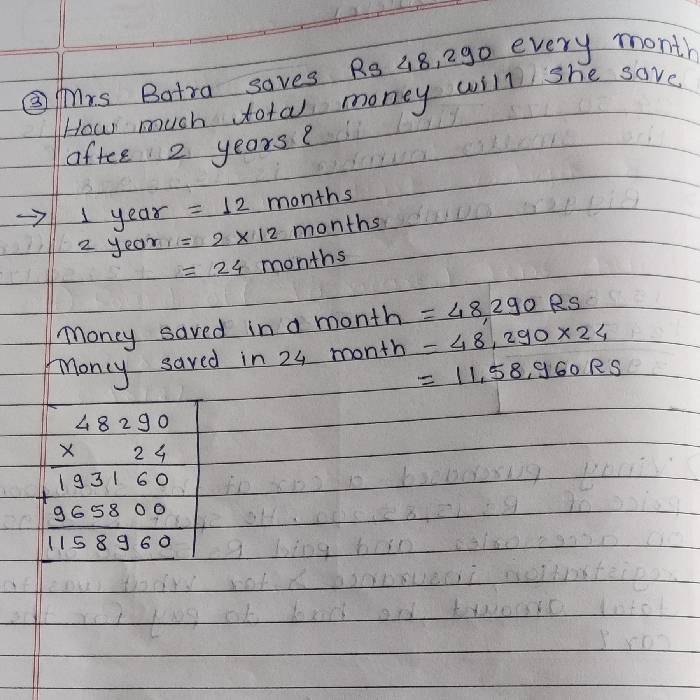 ③ Mrs Batra saves Rs 48,290 every month
How much total money will she save
after 2 years?
→ 1 year = 12 months
2 year = 2 × 12 months
= 24 months
Money saved in a month = 48,290 Rs
Money saved in 24 month = 48,290 × 24
= 11,58,960 RS
48290
× 24
193160
+ 965800
1158960